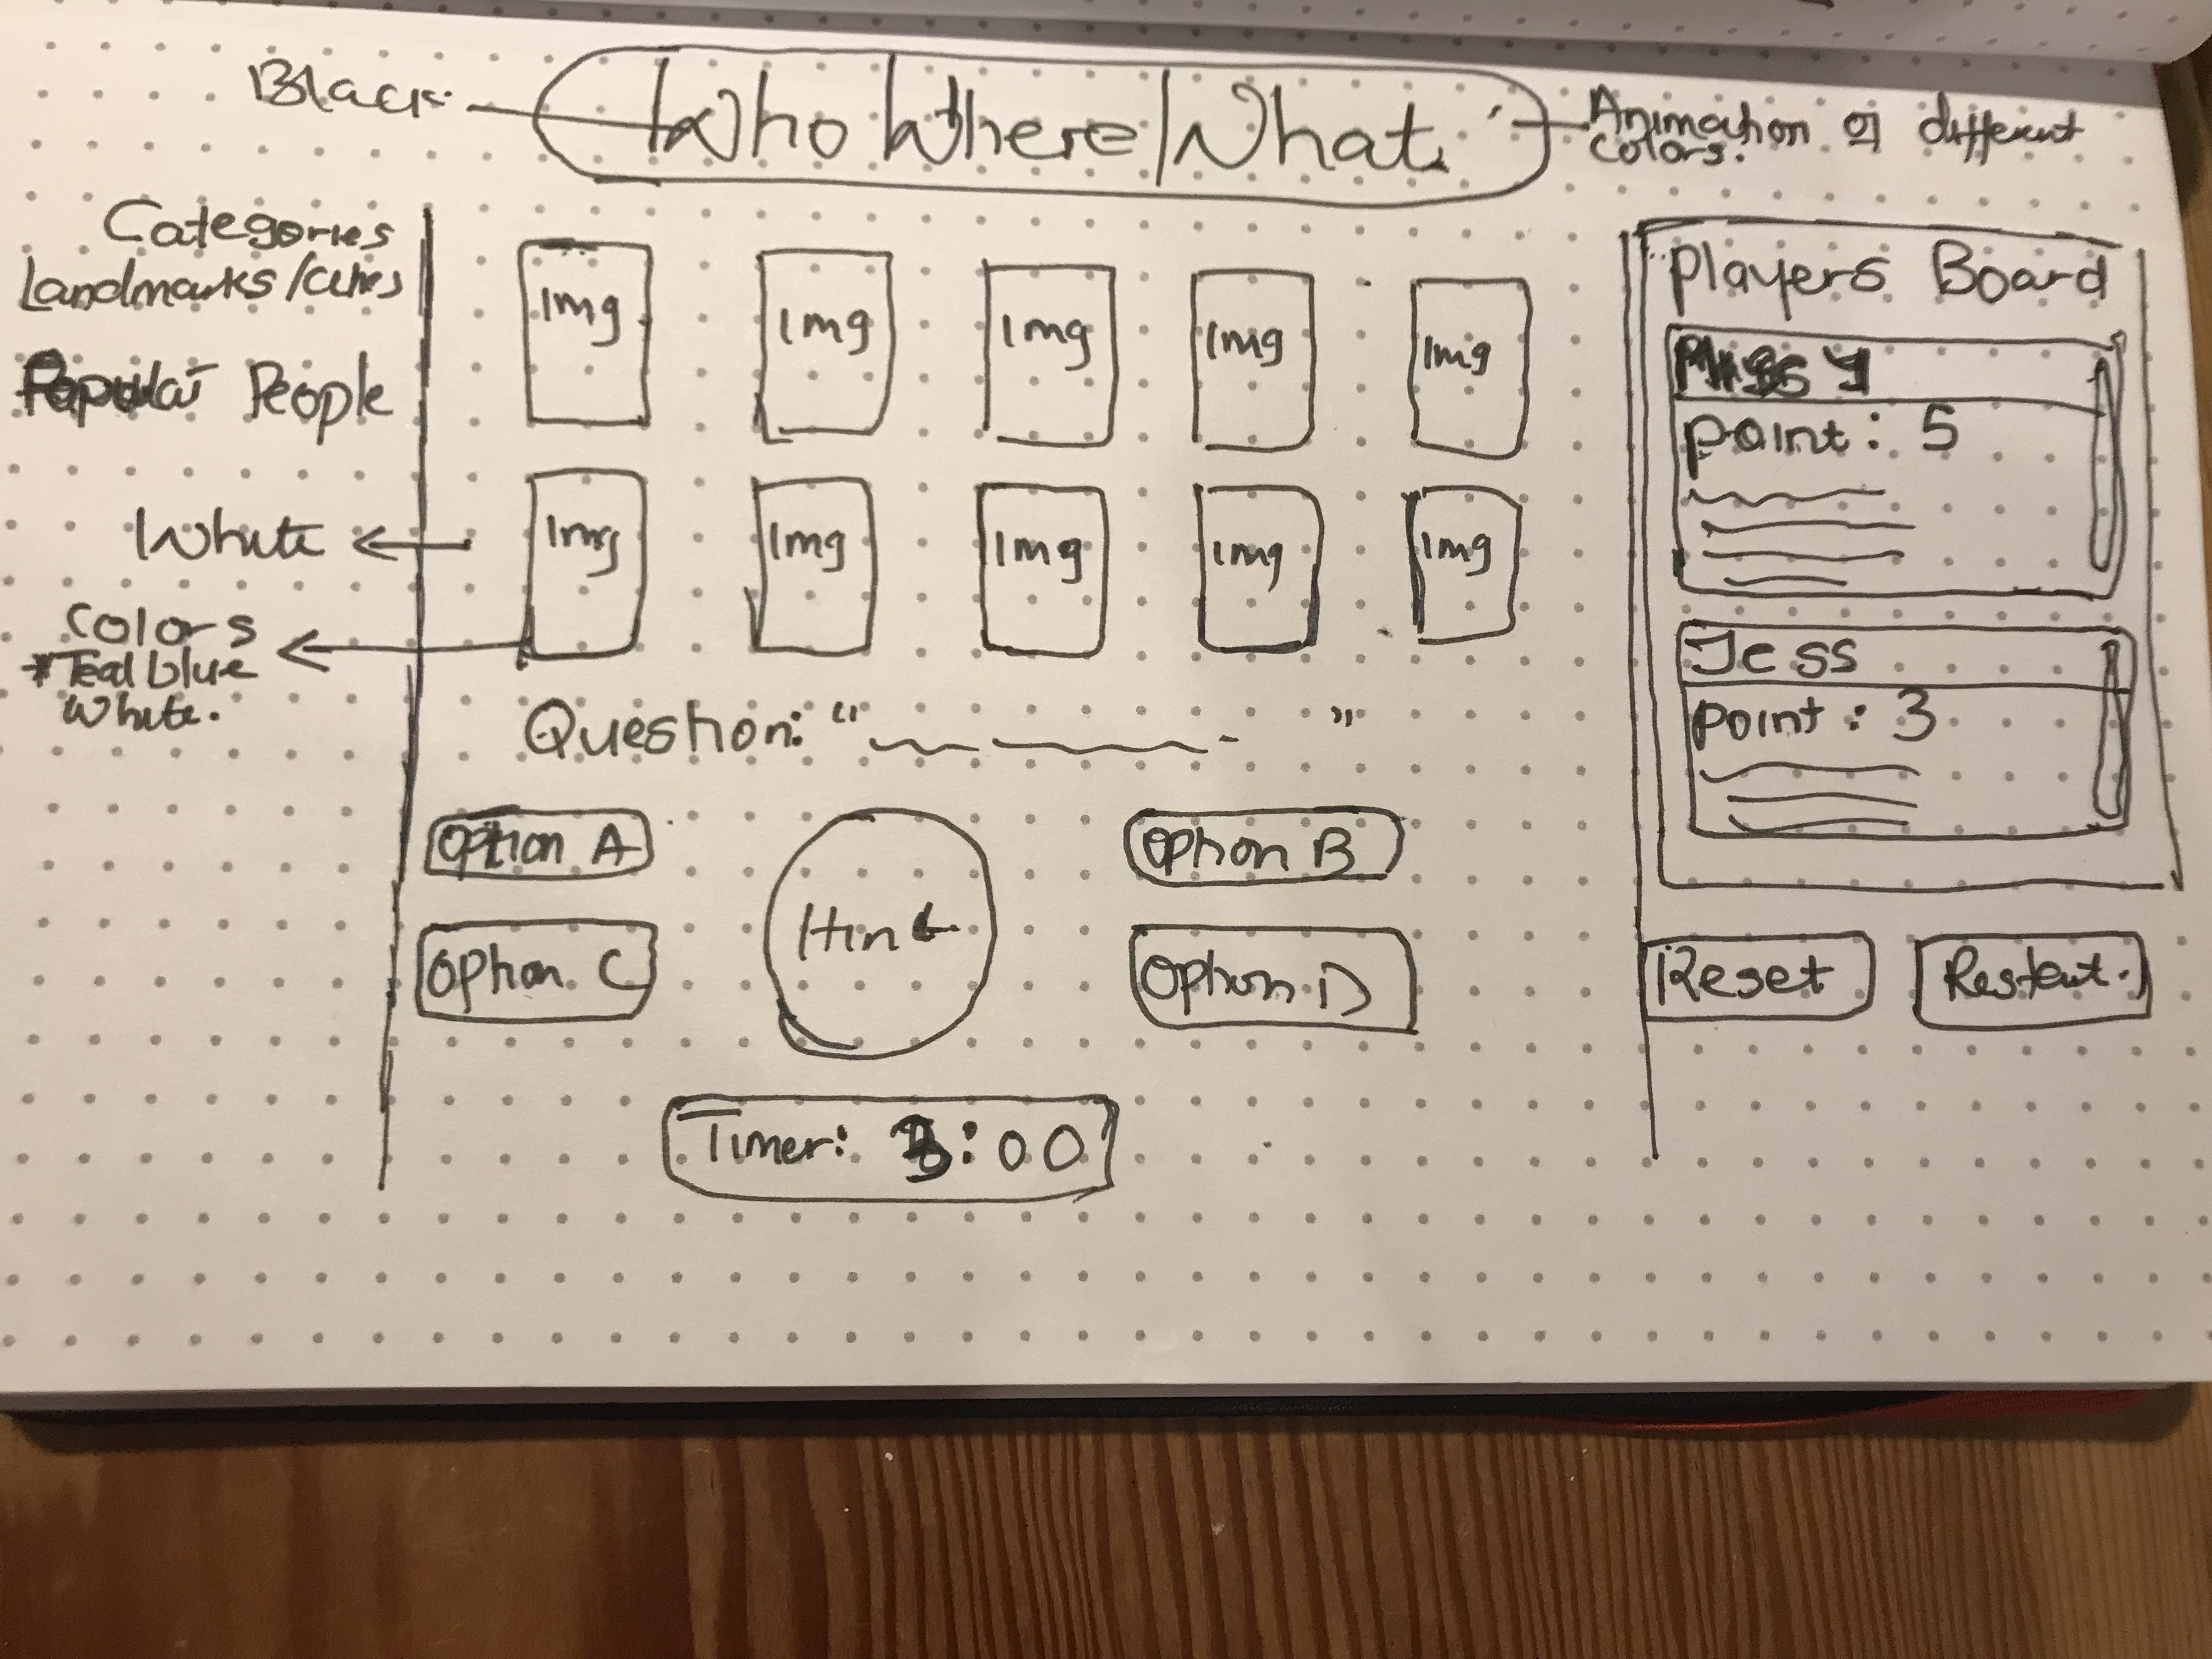 Black
Who Where What
Animation of different
colors
Categories
Landmarks/
Popular People
White
Colors
Teal blue
White.
Img Img Img Img Img
Img Img Img Img Img
Question: " "
Option A
Option B
Option C
Option D
Hint
Timer: :00
Players Board
Missy
Point: 5
Jess
Point: 3
Reset
Restart.